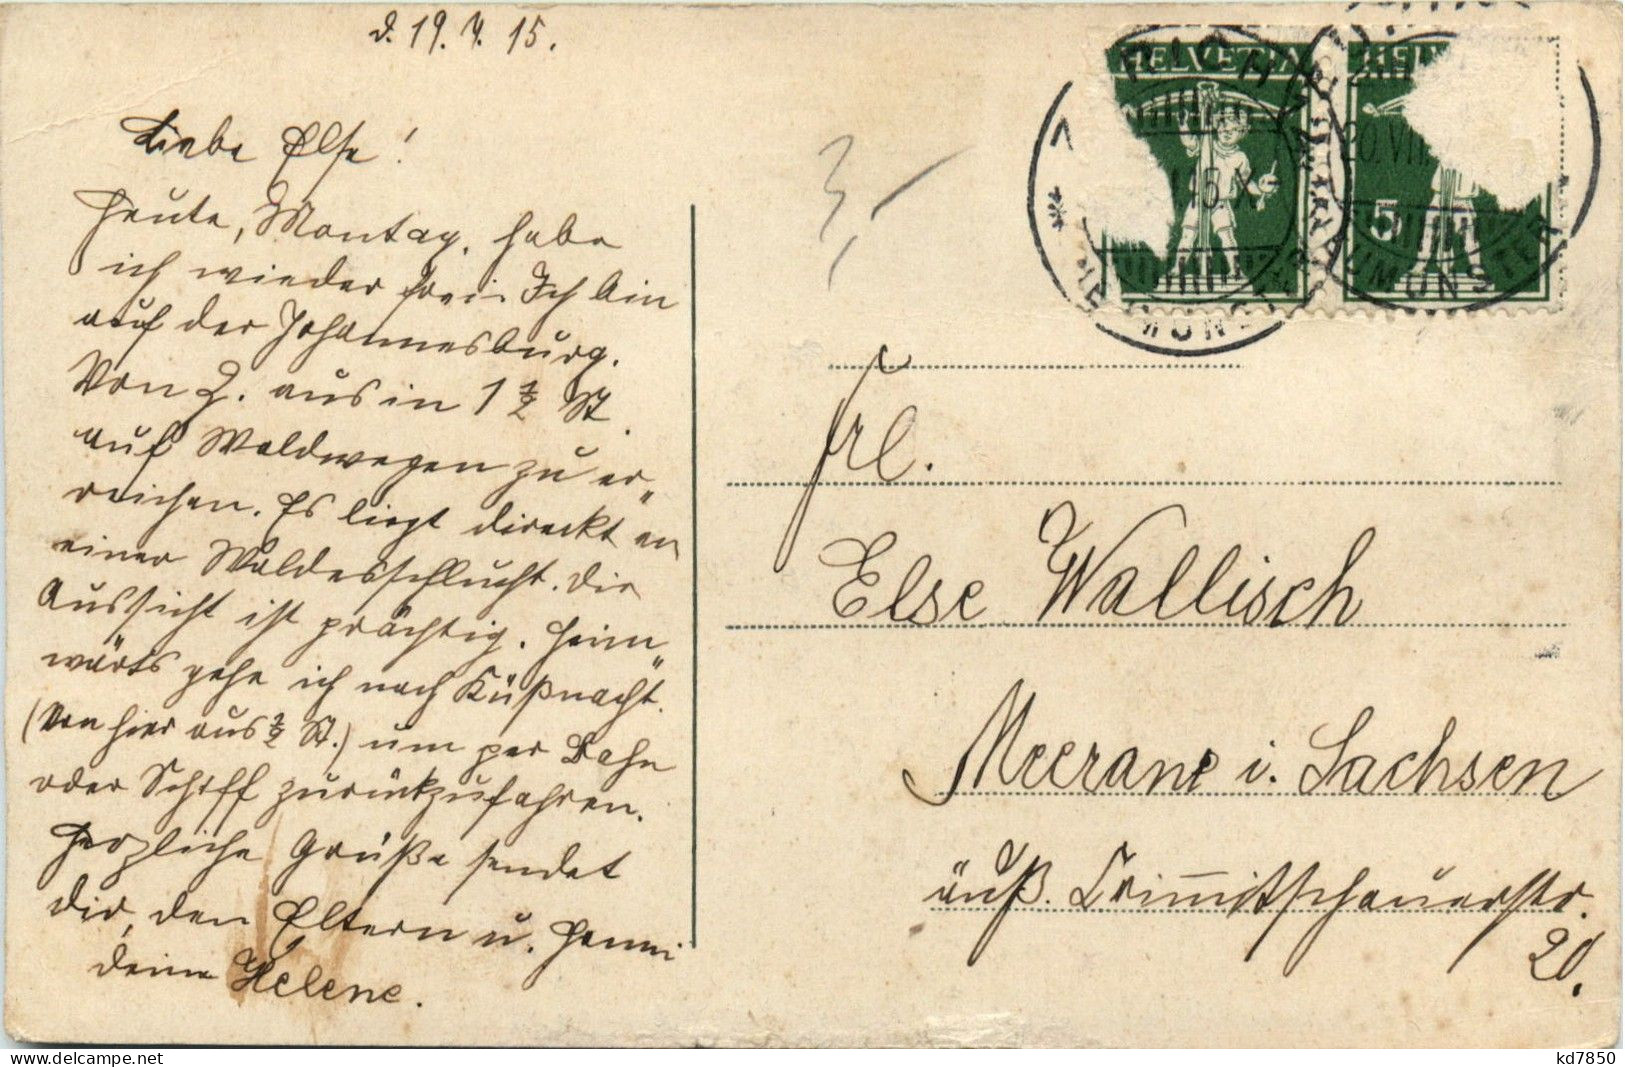 d. 19. 7. 15.
Liebe Else!
Heute, Montag, habe
ich wieder frei. Ich bin
auf der Johannesburg.
Von Z. aus in 1 1/2 St.
auf Waldwegen zu er„
reichen. Es liegt direckt an
einer Waldesschlucht. Die
Aussicht ist prächtig. Heim„
wärts gehe ich nach Küßnacht.
(Von hier aus 1/2 St.) um per Bahn
oder Schiff zurückzufahren.
Herzliche Grüße sendet
dir, den Eltern u. Hanni
deine Helene.
HELVETIA
5
20.VII
Frl.
Else Wallisch
Meerane i. Sachsen
äuß. Crimmitschauerstr.
20.
delcampe.net
kd7850